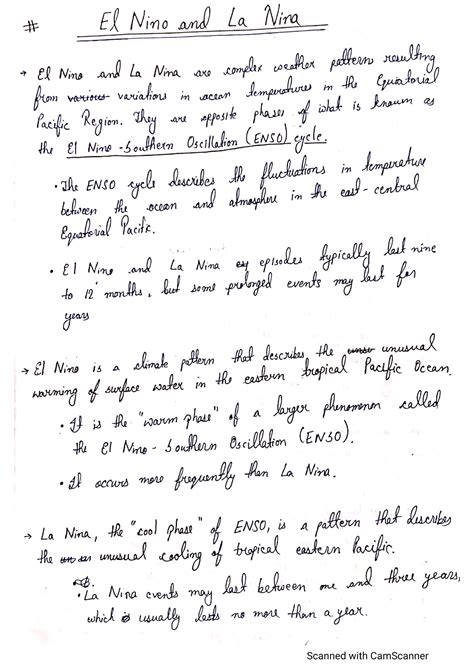 # El Nino and La Nina
→ El Nino and La Nina are complex weather pattern resulting
from various variations in ocean temperatures in the Equatorial
Pacific Region. They are opposite phases of what is known as
the El Nino - Southern Oscillation (ENSO) cycle.
• The ENSO cycle describes the fluctuations in temperature
between the ocean and atmosphere in the east-central
Equatorial Pacific.
• El Nino and La Nina episodes typically last nine
to 12 months, but some prolonged events may last for
years
→ El Nino is a climate pattern that describes the unusual
warming of surface water in the eastern tropical Pacific Ocean.
• It is the "warm phase" of a larger phenomenon called
the El Nino - Southern Oscillation (ENSO).
• It occurs more frequently than La Nina.
→ La Nina, the "cool phase" of ENSO, is a pattern that describes
the unusual cooling of tropical eastern Pacific.
• La Nina events may last between one and three years,
which is usually lasts no more than a year.
Scanned with CamScanner